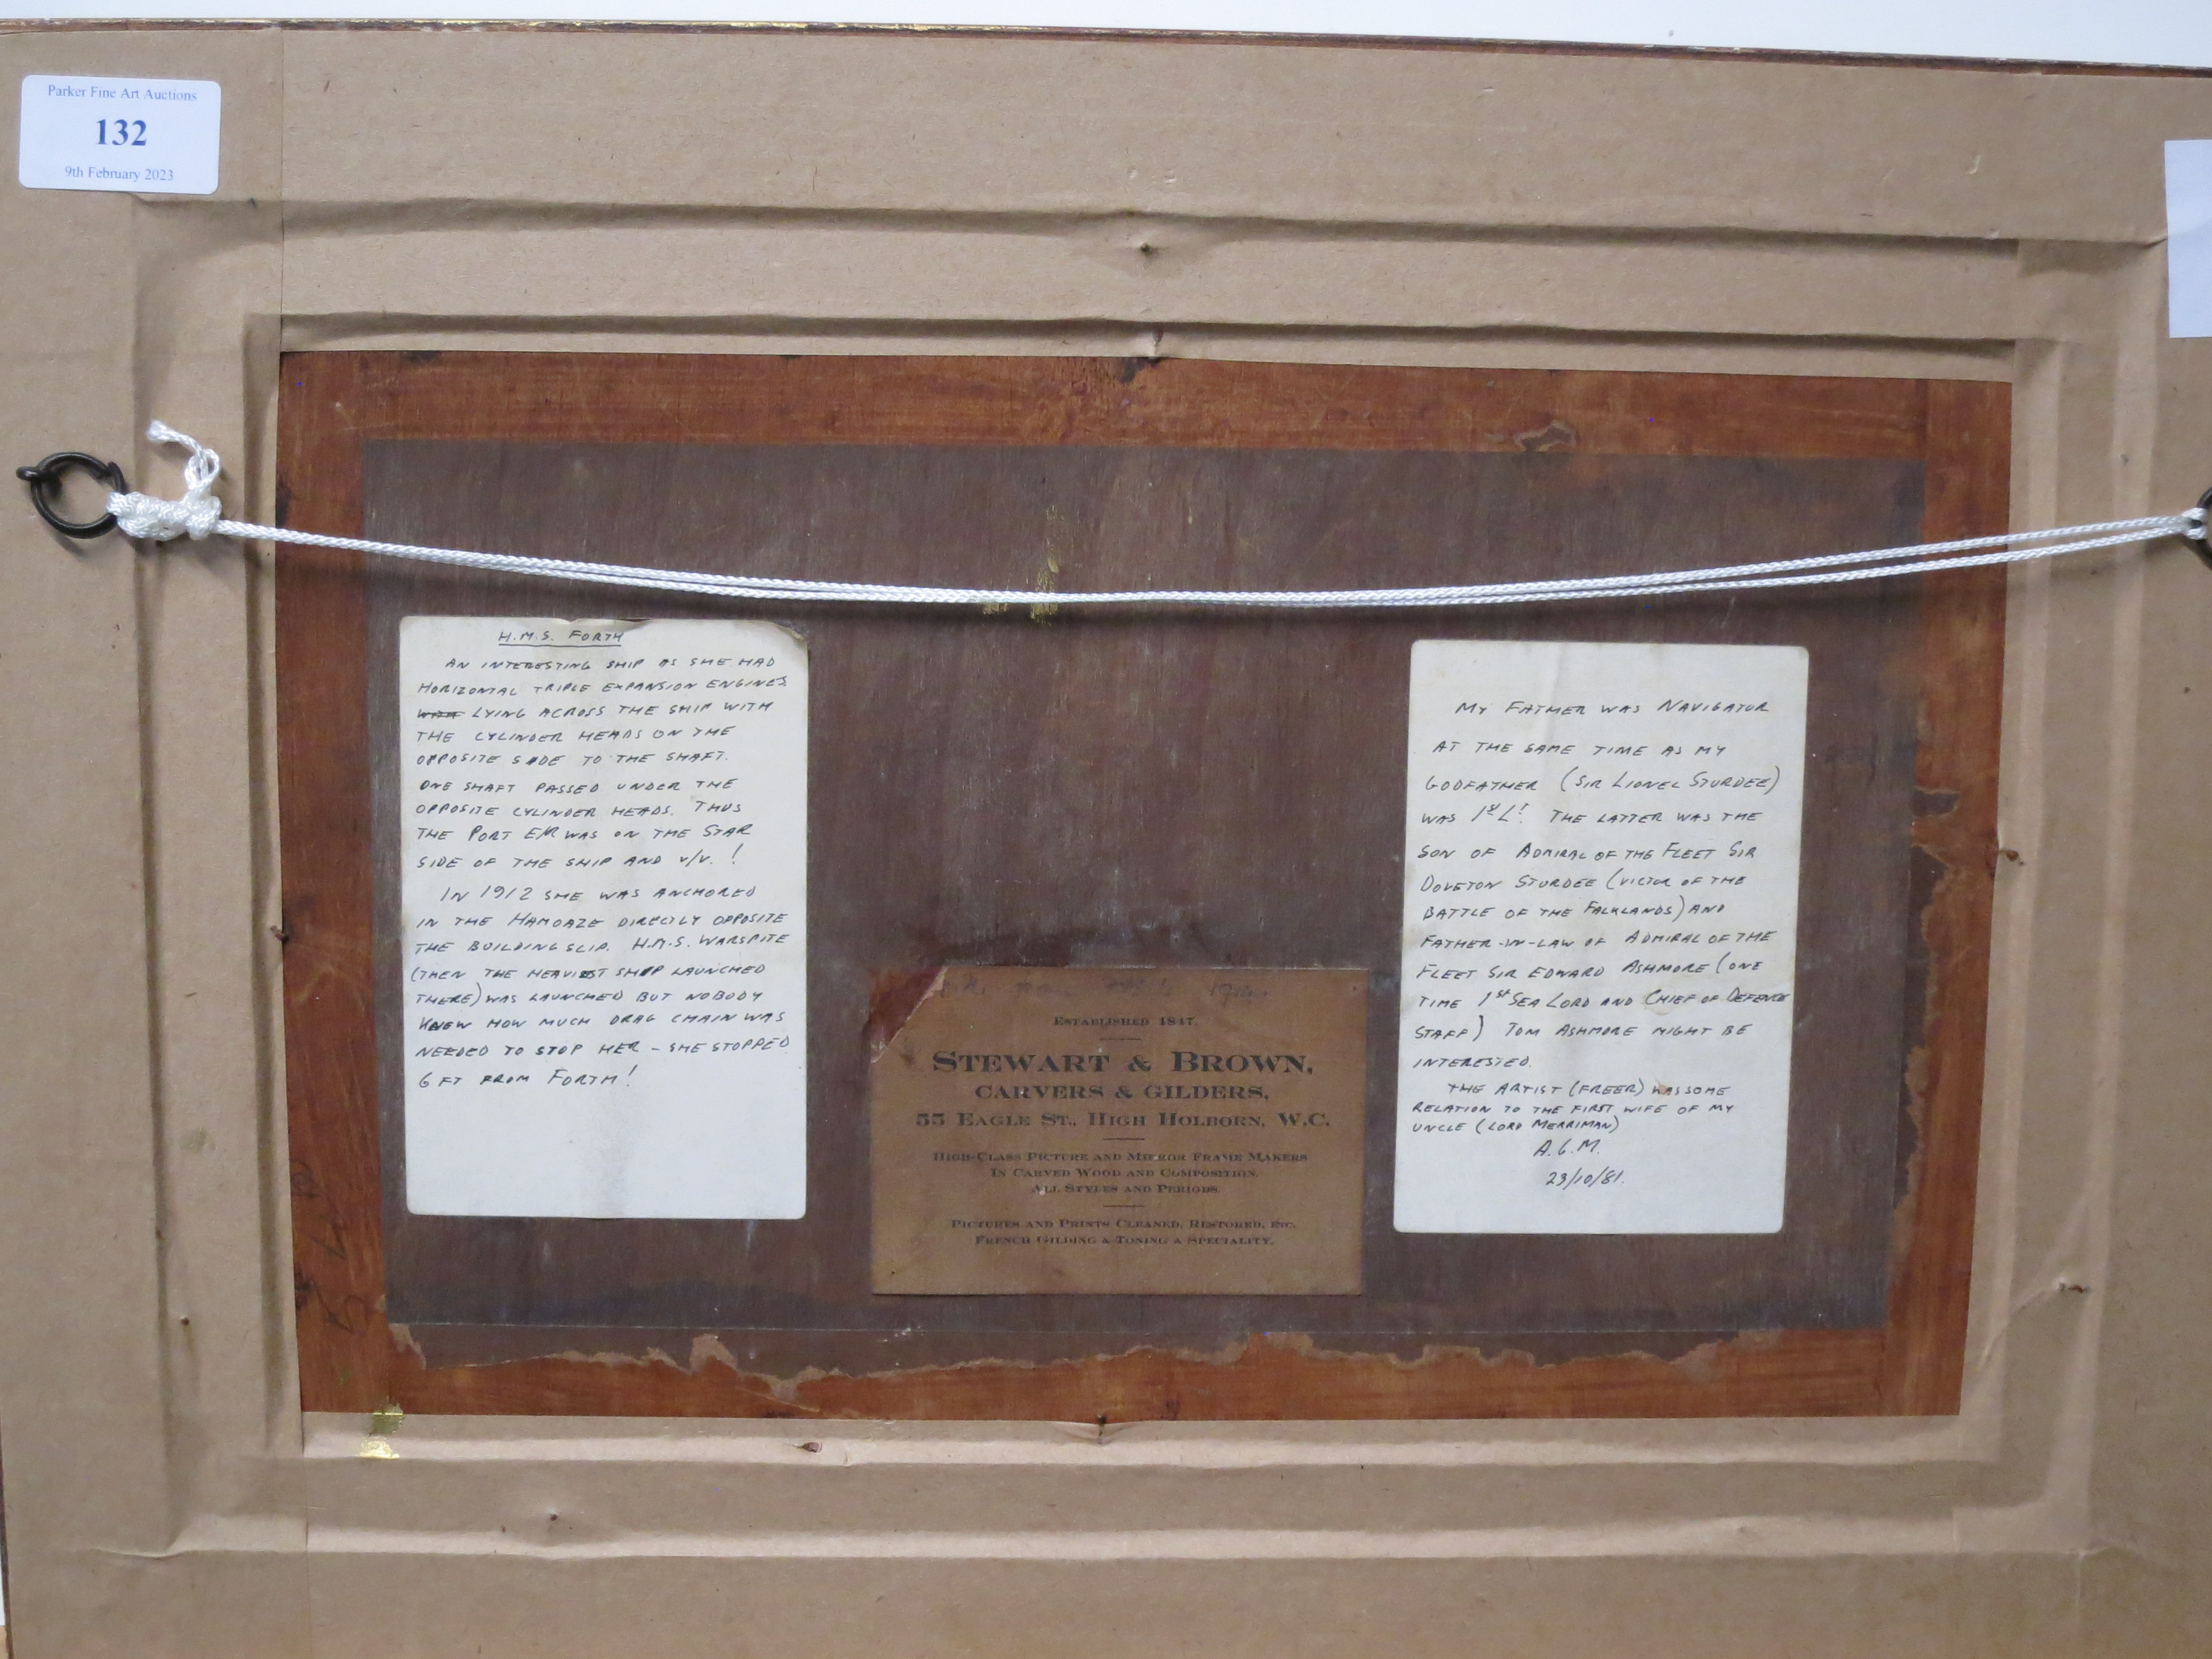 Parker Fine Art Auctions
132
9th February 2023
H.M.S. FORTH
AN INTERESTING SHIP AS SHE HAD
HORIZONTAL TRIPLE EXPANSION ENGINES
LYING ACROSS THE SHIP WITH
THE CYLINDER HEADS ON THE
OPPOSITE SIDE TO THE SHAFT.
ONE SHAFT PASSED UNDER THE
OPPOSITE CYLINDER HEADS. THUS
THE PORT E/R WAS ON THE STAR
SIDE OF THE SHIP AND V/V. !
IN 1912 SHE WAS ANCHORED
IN THE HAMOAZE DIRECTLY OPPOSITE
THE BUILDING SLIP. H.M.S. WARSPITE
(THEN THE HEAVIEST SHIP LAUNCHED
THERE) WAS LAUNCHED BUT NOBODY
KNEW HOW MUCH DRAG CHAIN WAS
NEEDED TO STOP HER – SHE STOPPED
6 FT FROM FORTH!
ESTABLISHED 1847.
STEWART & BROWN,
CARVERS & GILDERS,
55 EAGLE ST., HIGH HOLBORN, W.C.
HIGH-CLASS PICTURE AND MIRROR FRAME MAKERS
IN CARVED WOOD AND COMPOSITION.
ALL STYLES AND PERIODS.
PICTURES AND PRINTS CLEANED, RESTORED, ETC.
FRENCH GILDING & TONING A SPECIALITY.
MY FATHER WAS NAVIGATOR
AT THE SAME TIME AS MY
GODFATHER (SIR LIONEL STURDEE)
WAS 1st Lt. THE LATTER WAS THE
SON OF ADMIRAL OF THE FLEET SIR
DOVETON STURDEE (VICTOR OF THE
BATTLE OF THE FALKLANDS) AND
FATHER-IN-LAW OF ADMIRAL OF THE
FLEET SIR EDWARD ASHMORE (ONE
TIME 1st SEA LORD AND CHIEF OF DEFENCE
STAFF) TOM ASHMORE MIGHT BE
INTERESTED.
THE ARTIST (FREER) WAS SOME
RELATION TO THE FIRST WIFE OF MY
UNCLE (LORD MERRIMAN)
A.G.M.
23/10/81.